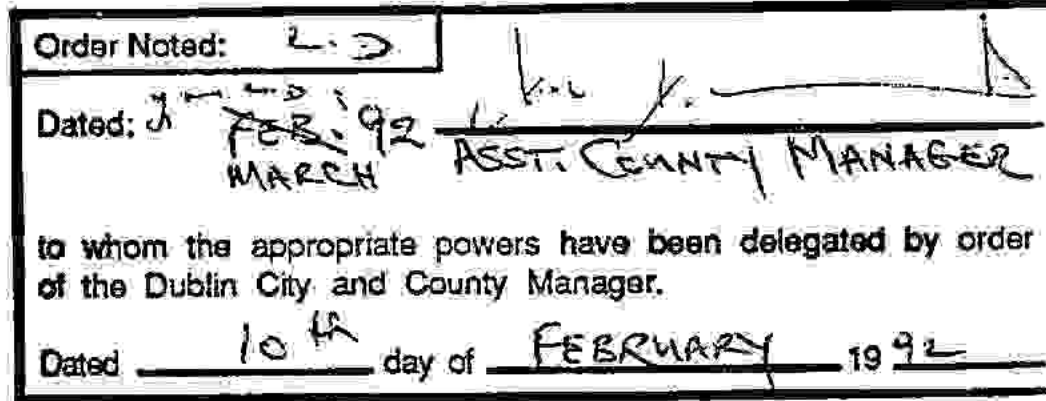 Order Noted: L.D
Dated: FEB. '92
MARCH ASST. COUNTY MANAGER
to whom the appropriate powers have been delegated by order
of the Dublin City and County Manager.
Dated 10th day of FEBRUARY 1992